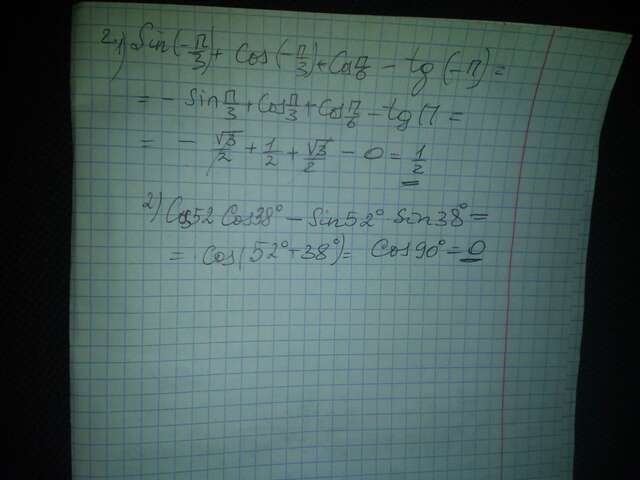 2.1) Sin(-π/3) + Cos(-π/3) + Cos π/6 - tg(-π) =
= - Sin π/3 + Cos π/3 + Cos π/6 - tg π =
= - √3/2 + 1/2 + √3/2 - 0 = 1/2
2) Cos52 Cos38° - Sin52° · Sin38° =
= Cos(52° + 38°) = Cos90° = 0